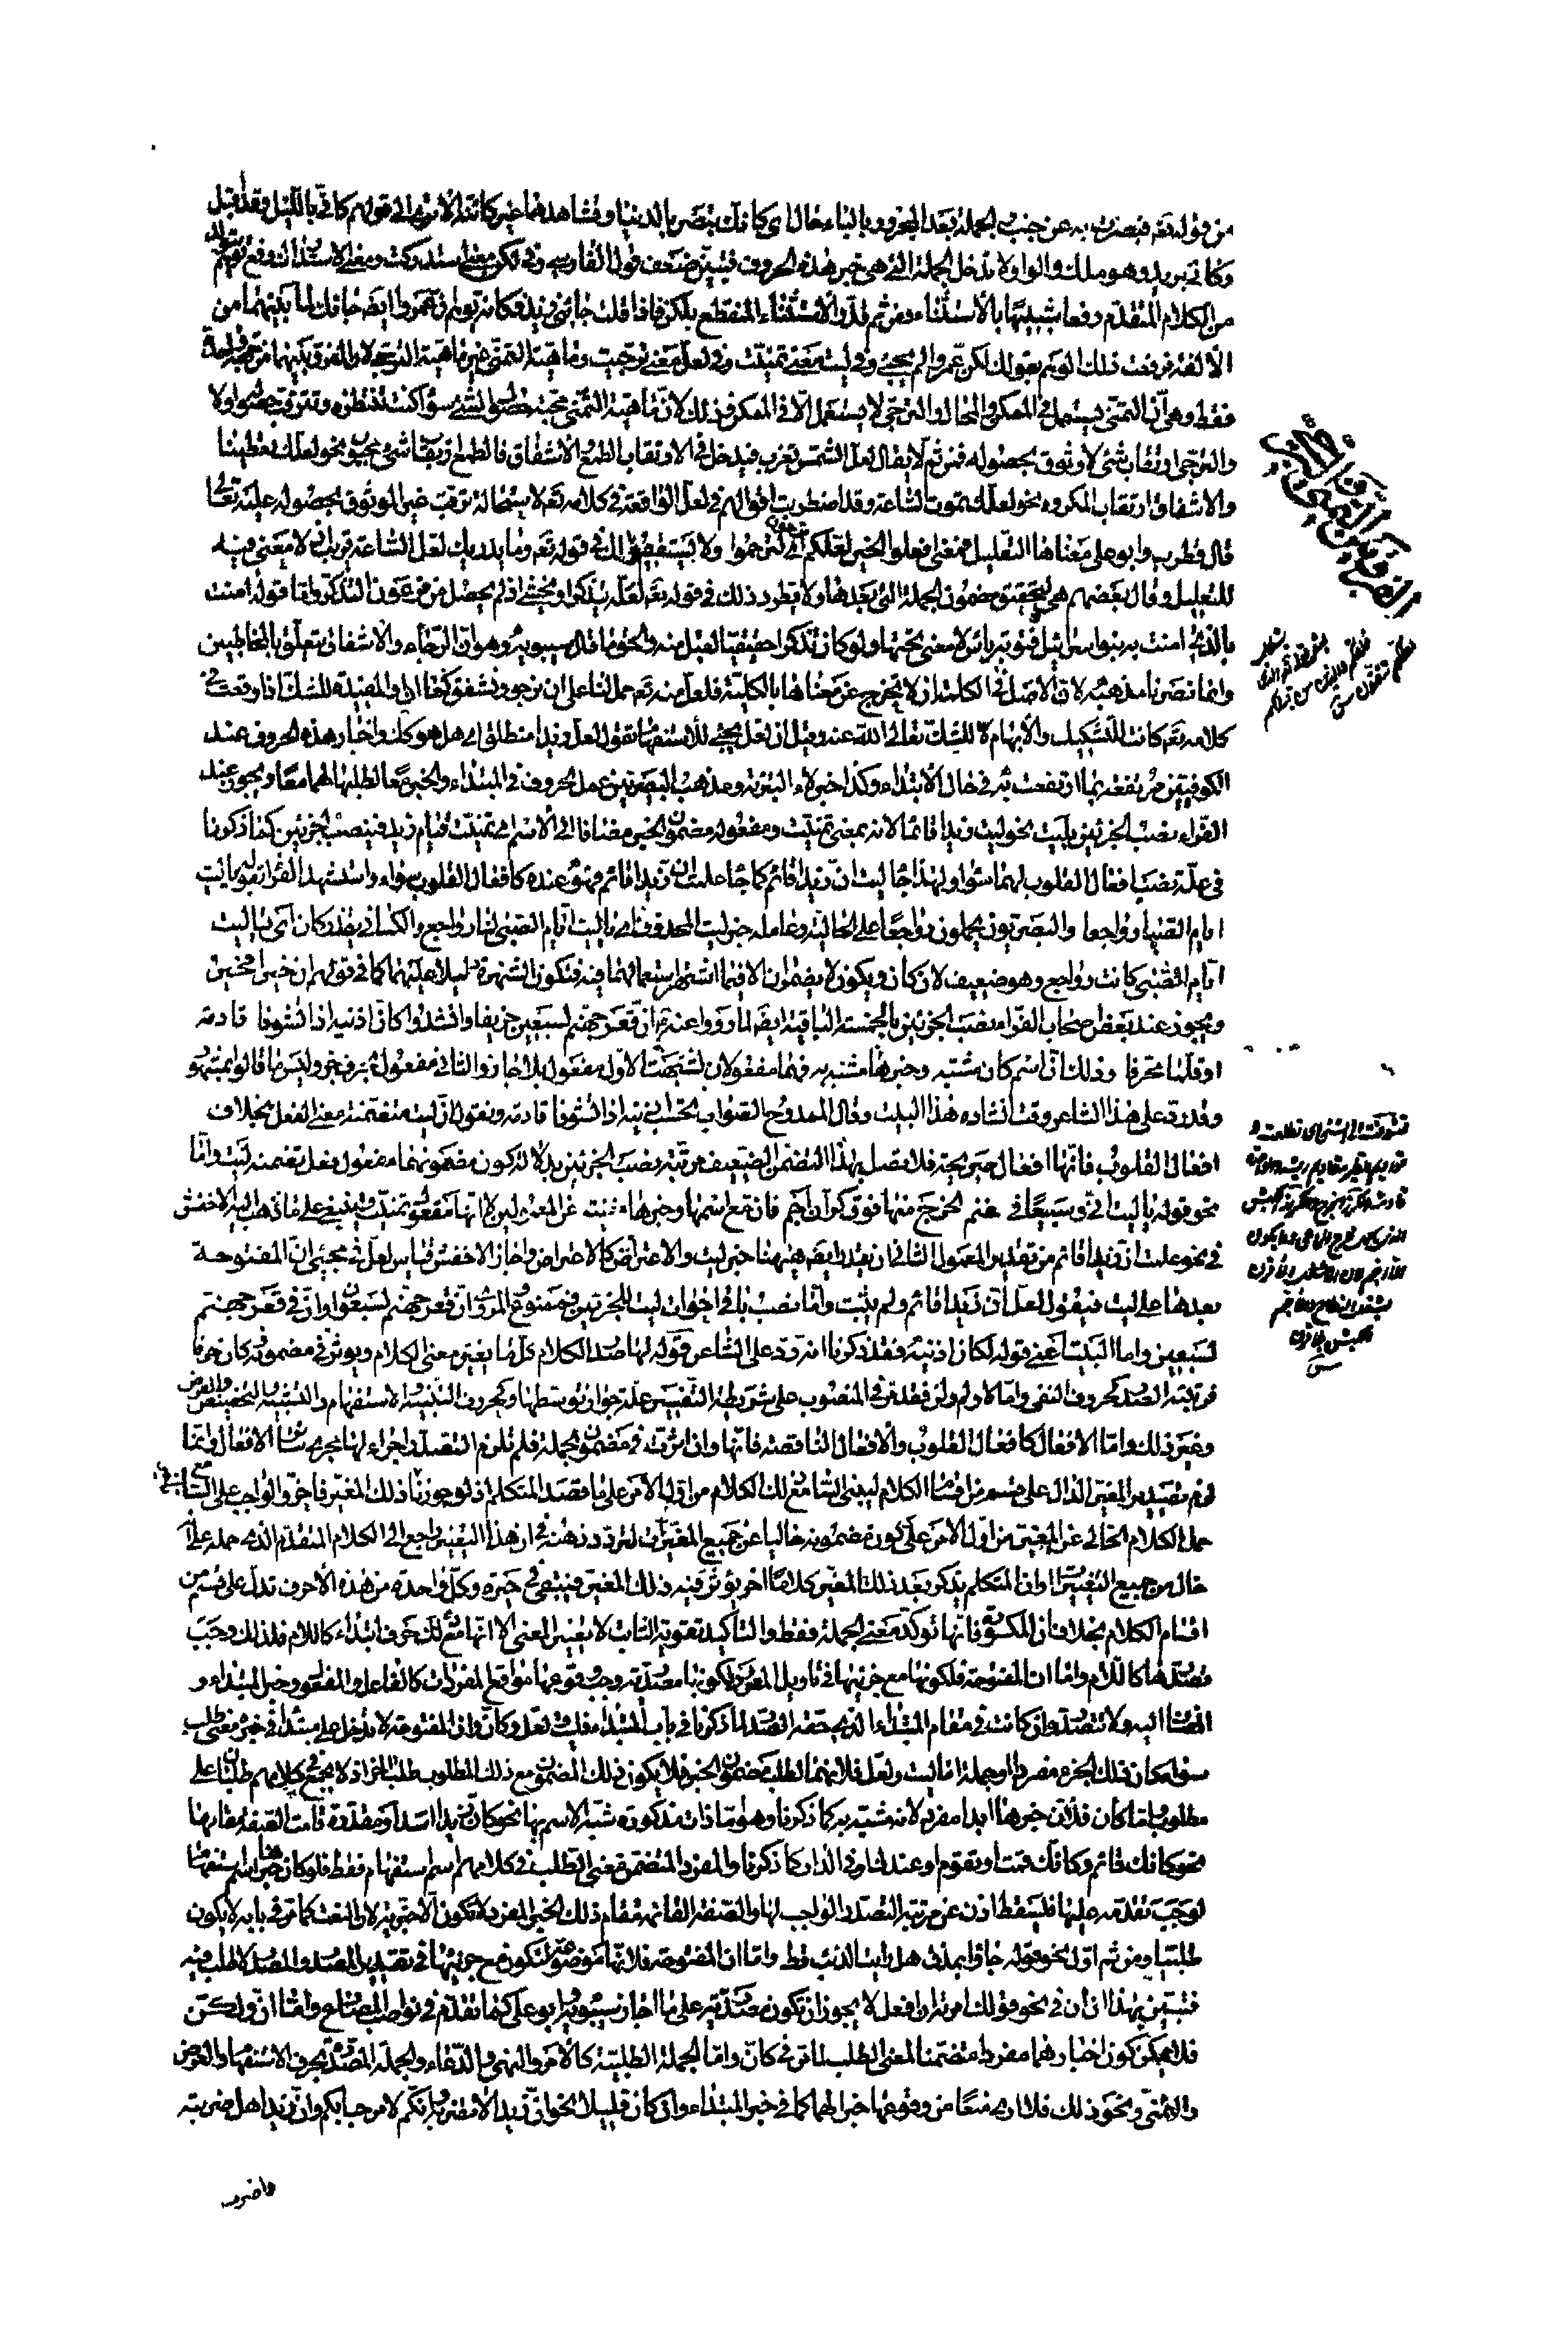 من قوله تعه فبصرت به عن جنب والجملة بعد المجرور بالباء حال اى كانك تبصر بالدنيا وتشاهدها غير كائنة الا ترى الى قولهم كانى بالليل وقد اقبل
وكانى بزيد وهو ملك والواو لا تدخل الجملة التى هى خبر هذه الحروف فتبين ضعف قول الفارسى وفى لكن معنى استدركت ومعنى الاستدراك رفع توهم يتولد
من الكلام المتقدم رفعا شبيها بالاستثناء ومن ثم قدر الاستثناء المنقطع بلكن فاذا قلت جائنى زيد فكانه توهم ان عمروا ايضه جاءك لما بينهما من
الالفة فرفعت ذلك الوهم بقولك لكن عمروا لم يجئ وفى ليت معنى تمنيت وفى لعل معنى ترجيت وماهية التمنى غير ماهية الترجى لا ان الفرق بينهما من جهة واحدة
فقط وهى ان التمنى يستعمل فى الممكن والمحال والترجى لا يستعمل الا فى الممكن وذلك لان ماهية التمنى محبة حصول الشئ سواء كنت تنتظره وتترقب حصوله او لا
والترجى ارتقاب شئ لا وثوق بحصوله فمن ثم لا يقال لعل الشمس تغرب فيدخل فى الارتقاب الطمع والاشفاق فالطمع ارتقاب شئ محبوب نحو لعلك تعطينا
والاشفاق ارتقاب المكروه نحو لعلك تموت الساعة وقد اضطربت اقوالهم فى لعل الواقعة فى كلامه تعه لاستحالة ترقب غير الموثوق بحصوله عليه تعالى
قال قطرب وابو على معناها التعليل فمعنى افعلوا الخير لعلكم ترحمون اى لترحموا ولا يستقيم ذلك فى قوله تعه وما يدريك لعل الساعة قريب اذ لا معنى فيه
للتعليل وقال بعضهم هى لتحقيق مضمون الجملة التى بعدها ولا يطرد ذلك فى قوله تعه لعله يتذكر او يخشى اذ لم يحصل من فرعون التذكر واما قوله امنت
بالذى امنت به بنوا اسرائيل فتوبة يأس لا معنى تحتها ولو كان تذكرا حقيقيا لقبل منه والحق ما قال سيبويه وهو ان الرجاء والاشفاق يتعلق بالمخاطبين
وانما نصرنا مذهبه لان الاصل فى الكلمة ان لا تخرج عن معناها بالكلية فلعل منه تعه حمل لنا على ان نرجو ونشفق كما ان او المفيدة للشك اذا وقعت فى
كلامه تعه كانت للتشكيك والابهام لا للشك تعالى الله عنه وقيل ان لعل يجئ للاستفهام تقول لعل زيدا منطلق اى هل هو كذلك واخبار هذه الحروف عند
الكوفيين مرتفعة بما ارتفعت به فى حال الابتداء وكذا خبر لاء التبرئة ومذهب البصريين عمل الحروف فى المبتداء والخبر معا لطلبها لهما معا ويجوز عند
الفراء نصب الجزئين بليت نحو ليت زيدا قائما لانه بمعنى تمنيت ومفعوله مضمون الخبر مضافا الى الاسم اى تمنيت قيام زيد فينصب الجزئين كما ذكرنا
فى علة نصب افعال القلوب لهما سواء ولهذا جاء ليت ان زيدا قائم كما جاء علمت ان زيدا قائم فهو عنده كافعال القلوب سواء واستشهد الفراء بقوله يا ليت
ايام الصبا رواجعا والبصريون يحملون رواجعا على الحالية وعامله خبر ليت المحذوف اى يا ليت ايام الصبى لنا رواجع والكسائى يقدر كان اى يا ليت
ايام الصبى كانت رواجع وهو ضعيف لان كان ويكون لا يضمران الا فيما اشتهر استعمالهما فيه فتكون الشهرة دليلا عليهما كما فى قولهم ان خيرا فخير
ويجوز عند بعض اصحاب الفراء نصب الجزئين بالخمسة الباقية ايضه لما رووا عنه ع ان قعر جهنم لسبعين خريفا وانشدوا كان اذنيه اذا تشوفا قادمة
او قلما محرفا وذلك ان اسم كان مشبه وخبرها مشبه به فهما مفعولان لشبهت الاول مفعول بلا جار والثانى مفعول به بحرف جر وليس ما قالوا بمشهور
وقد رد على هذا الشاعر وقت انشاده هذا البيت وقال الممدوح الصواب تحسب اذنيه اذا تشوفا قادمة ونقول ان ليت متضمنة معنى الفعل بخلاف
افعال القلوب فانها افعال صريحة فلا تصل بهذا التضمن الضعيف مرتبة نصب الجزئين بلا لتكون مضمونهما مفعول فعل تضمنه ليت واما
نحو قوله يا ليت انى وسبيعا فى غنم والخرج منها فوق كراز اجم فان مع اسمها وخبرها مغنية عن المعمولين لا انها مفعول تمنيت وينبغى على ما ذهب اليه الاخفش
فى نحو علمت ان زيدا قائم من تقدير المعمول الثانى ان يقدر ايضه ههنا خبر ليت والاعتراض كالاعتراض واجاز الاخفش قياس لعل فى مجئ ان المفتوحة
بعدها على ليت فيقول لعل ان زيدا قائم ولم يثبت واما نصب باقى اخوات ليت للجزئين فممنوع والمروى ان قعر جهنم لسبعون او ان فى قعر جهنم
لسبعين واما البيت اعنى قوله كان اذنيه فقد ذكرنا انه رد على الشاعر قوله لها صدر الكلام كل ما يغير معنى الكلام ويوثر فى مضمونه وكان حرفا
فمرتبته الصدر كحروف النفى واما لا ولم ولن فقد مر فى المنصوب على شريطة التفسير علة جواز توسطها وكحروف التنبيه والاستفهام والتشبيه والتحضيض والعرض
وغير ذلك واما الافعال كافعال القلوب والافعال الناقصة فانها وان اثرت فى مضمون الجملة فلم تلزم التصدر اجراء لها مجرى سائر الافعال وانما
لزم تصدير المغير الدال على قسم من اقسام الكلام ليبنى السامع ذلك الكلام من اول الامر على ما قصد المتكلم اذ لو جوزنا ذلك المغير فاخر والواجب على السامع
حمل الكلام الخالى عن المغير من اول الامر على كون مضمونه خاليا عن جميع المغيرات لتردد ذهنه فى ان هذا التغيير راجع الى الكلام المتقدم الذى حمله على انه
خال من جميع التغييرات او ان المتكلم يذكر بعد ذلك المغير كلاما اخر يؤثر فيه ذلك المغير فيبقى فى حيرة وكل واحدة من هذه الاحرف تدل على قسم من
اقسام الكلام بخلاف ان المكسورة فانها تؤكد معنى الجملة فقط والتاكيد تقوية الثابت لا تغيير المعنى الا انها مع ذلك حرف ابتداء كاللام فلذلك وجب
تصدرها كاللام واما ان المفتوحة فلكونها مع جزئيها فى تاويل المفرد لكونها مصدرية وجب وقوعها مواقع المفردات كالفاعل والمفعول وخبر المبتداء و
المضاف اليه ولا تتصدر وان كانت فى مقام المبتداء الذى حقه الصدر لما ذكرنا فى باب المبتداء فليت ولعل وكان وان المفتوحة لا تدخل على مبتدأ فى خبره معنى طلب
سواء كان ذلك الخبر مفردا او جملة اما ليت ولعل فلانهما لطلب مضمون الخبر فلا يكون ذلك المضمون مع ذلك المطلوب طلبا اخر اذ لا يجمع فى كلامهم طلبان على
مطلوب واما كان فلان خبرها ابدا مفرد لانه مشبه به كما ذكرنا وهو اما ذات مذكورة شبه الاسم بها نحو كان زيدا اسد او مقدرة قامت الصفة مقامها
نحو كانك قائم وكانك قمت او تقوم او عندك او فى الدار كما ذكرنا والمفرد المتضمن معنى الطلب فى كلامهم اسم استفهام فقط فلو كان خبرها اسم استفهام
لوجب تقدمه عليها فليسقط اذن عن مرتبة التصدر الواجب لها والصفة القائمة مقام ذلك الخبر المفرد لا تكون الا خبرية لان النعت كما مر فى بابه لا يكون
طلبيا ومن ثم اول نحو قوله جاؤا بمذق هل رايت الذئب قط واما ان المفتوحة فلانها موضوعة لتكون مع جزئيها فى تقدير المصدر والمصدر لا طلب فيه
فتبين بهذا ان ان فى نحو قولك امرته ان افعل لا يجوز ان تكون مصدرية على ما اجاز سيبويه وابو على كما تقدم فى نواصب المضارع واما ان ولكن
فلا يمكن كون اخبارهما مفردا متضمنا لمعنى الطلب لما مر فى كان واما الجملة الطلبية كالامر والنهى والدعاء والجملة المصدرة بحرف الاستفهام والعرض
والتمنى ونحو ذلك فلا ارى منعا من وقوعها خبرا لهما كما فى خبر المبتداء وان كان قليلا نحو ان زيدا لا تضربه وانكم لا مرحبا بكم وان زيدا هل ضربته
واضربه
الفرق بين التمنى والترجى